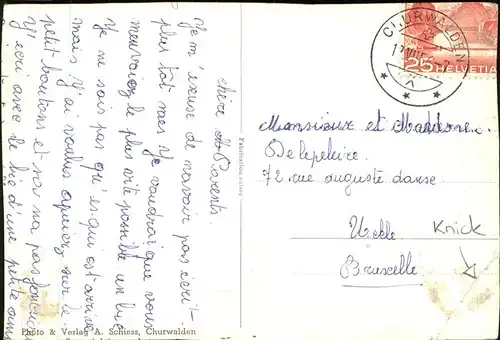 chère Parents.
Je m'éxcuse de mavoir pas ècrit
plus tôt mes Je voudrai que vous
menvoiez le plus vite possible un bic
Je ne sais pas qu'es-qui est arrivé
mais J'ai voulus apuier sur le
petit boutons et sa na pas fonctionné
J'écri avec le bic d'une petite ami
Photo & Verlag A. Schiess, Churwalden
Fabrication suisse
CHURWALDEN
25 HELVETIA
Monsieux et Maddame.
Delepelaire.
72 rue auguste danse
Uckle
Bruxelle
Knick